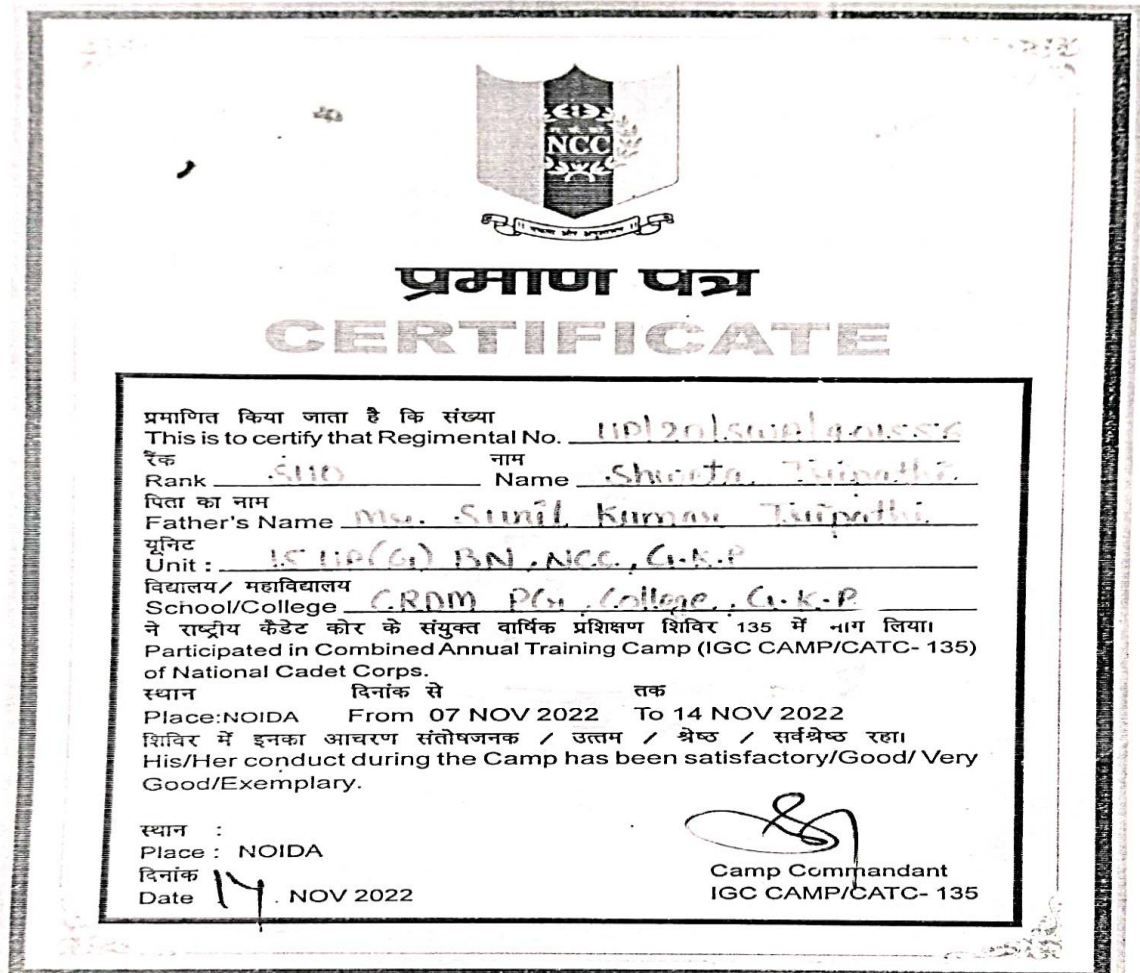 NCC
प्रमाण पत्र
CERTIFICATE
प्रमाणित किया जाता है कि संख्या
This is to certify that Regimental No.
रैंक नाम
Rank SUO Name Shweta Tripathi
पिता का नाम
Father's Name Mr. Sunil Kumar Tripathi
यूनिट
Unit : 15 UP(G) BN, NCC, G.K.P
विद्यालय/ महाविद्यालय
School/College CRDM PG, College, G.K.P
ने राष्ट्रीय कैडेट कोर के संयुक्त वार्षिक प्रशिक्षण शिविर 135 में भाग लिया।
Participated in Combined Annual Training Camp (IGC CAMP/CATC- 135)
of National Cadet Corps.
स्थान दिनांक से तक
Place:NOIDA From 07 NOV 2022 To 14 NOV 2022
शिविर में इनका आचरण संतोषजनक / उत्तम / श्रेष्ठ / सर्वश्रेष्ठ रहा।
His/Her conduct during the Camp has been satisfactory/Good/ Very
Good/Exemplary.
स्थान :
Place : NOIDA
दिनांक
Date 14 . NOV 2022
Camp Commandant
IGC CAMP/CATC- 135